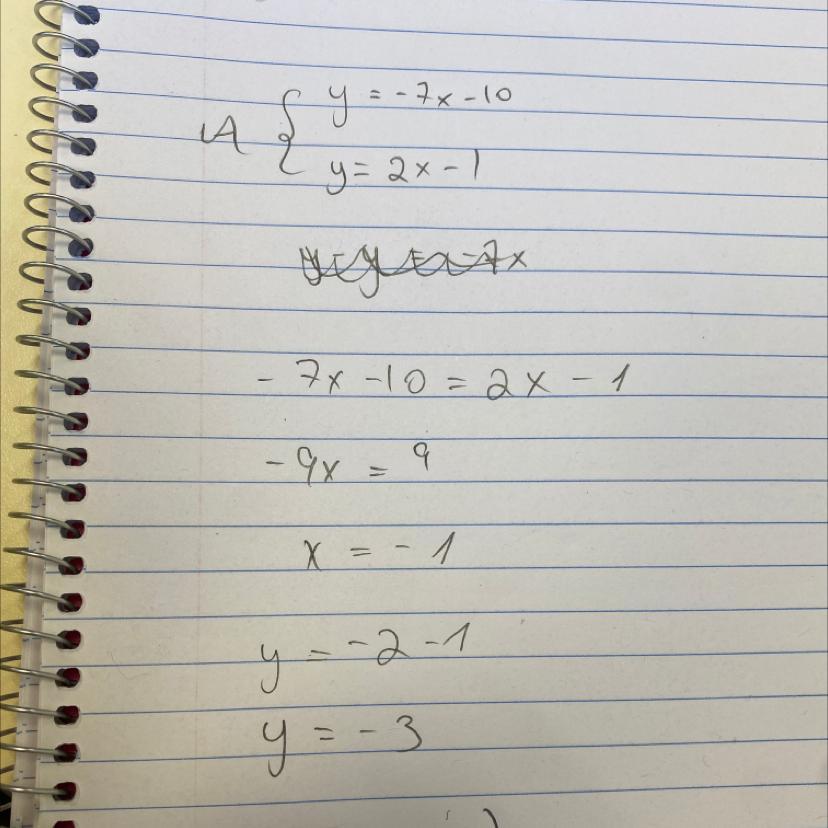 A { y = -7x - 10
y = 2x - 1
- 7x - 10 = 2x - 1
- 9x = 9
x = - 1
y = -2 - 1
y = - 3